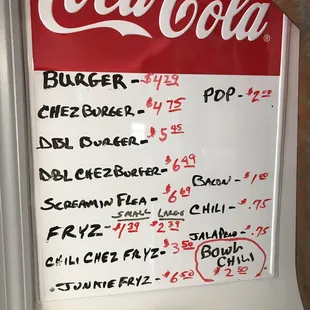 Coca-Cola
BURGER - $4.29
CHEZ BURGER - $4.75
POP - $2.00
DBL BURGER - $5.45
DBL CHEZ BURGER - $6.49
SCREAMIN FLEA - $6.69
BACON - $1.00
SMALL LARGE
FRYZ - $1.39 $2.39
CHILI - $.75
CHILI CHEZ FRYZ - $3.50
JALAPENO - $.75
BOWL
CHILI
$2.50
JUNKIE FRYZ - $6.50